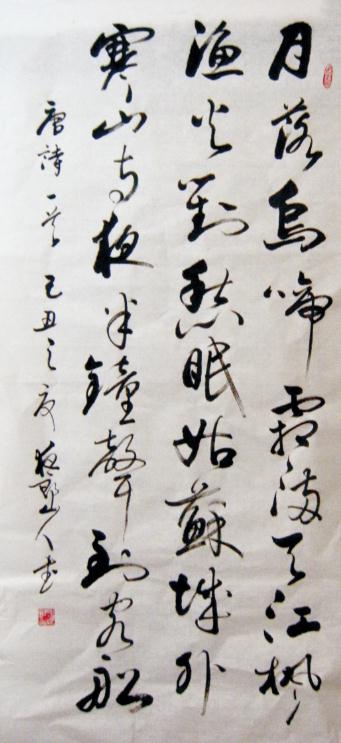 月落烏啼霜滿天江楓
漁火對愁眠姑蘇城外
寒山寺夜半鐘聲到客船
唐詩一首己丑之夏 人書